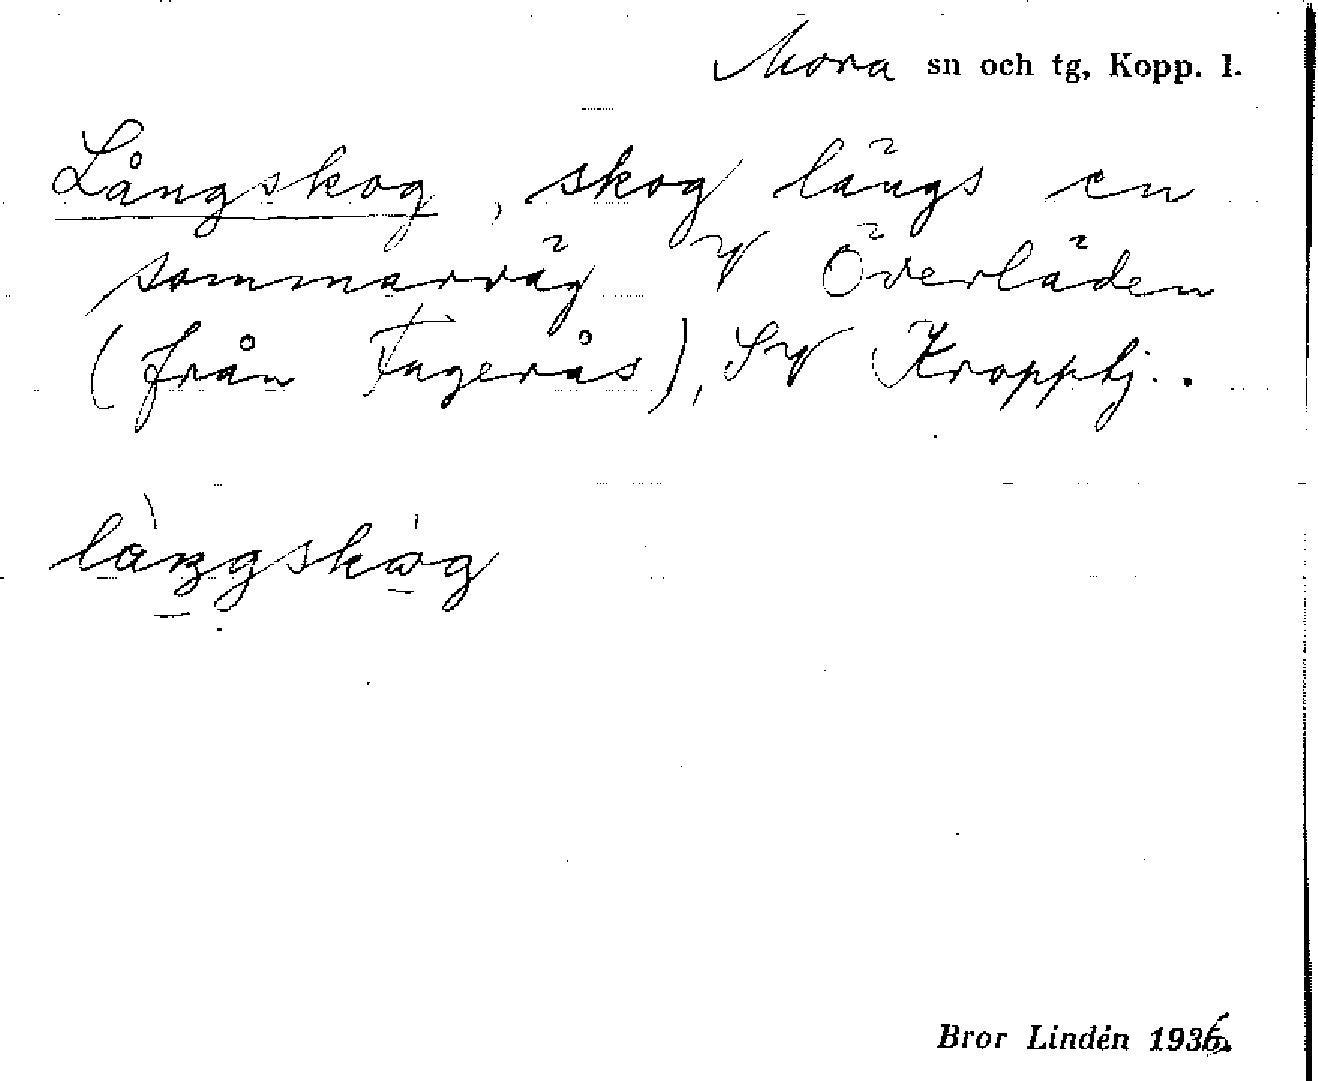 Mora sn och tg, Kopp. l.
Långskog, skog längs en
sommarväg V Överläden
(från Fagerås), SV Kroppbj..
làngskòg
Bror Lindén 1936.